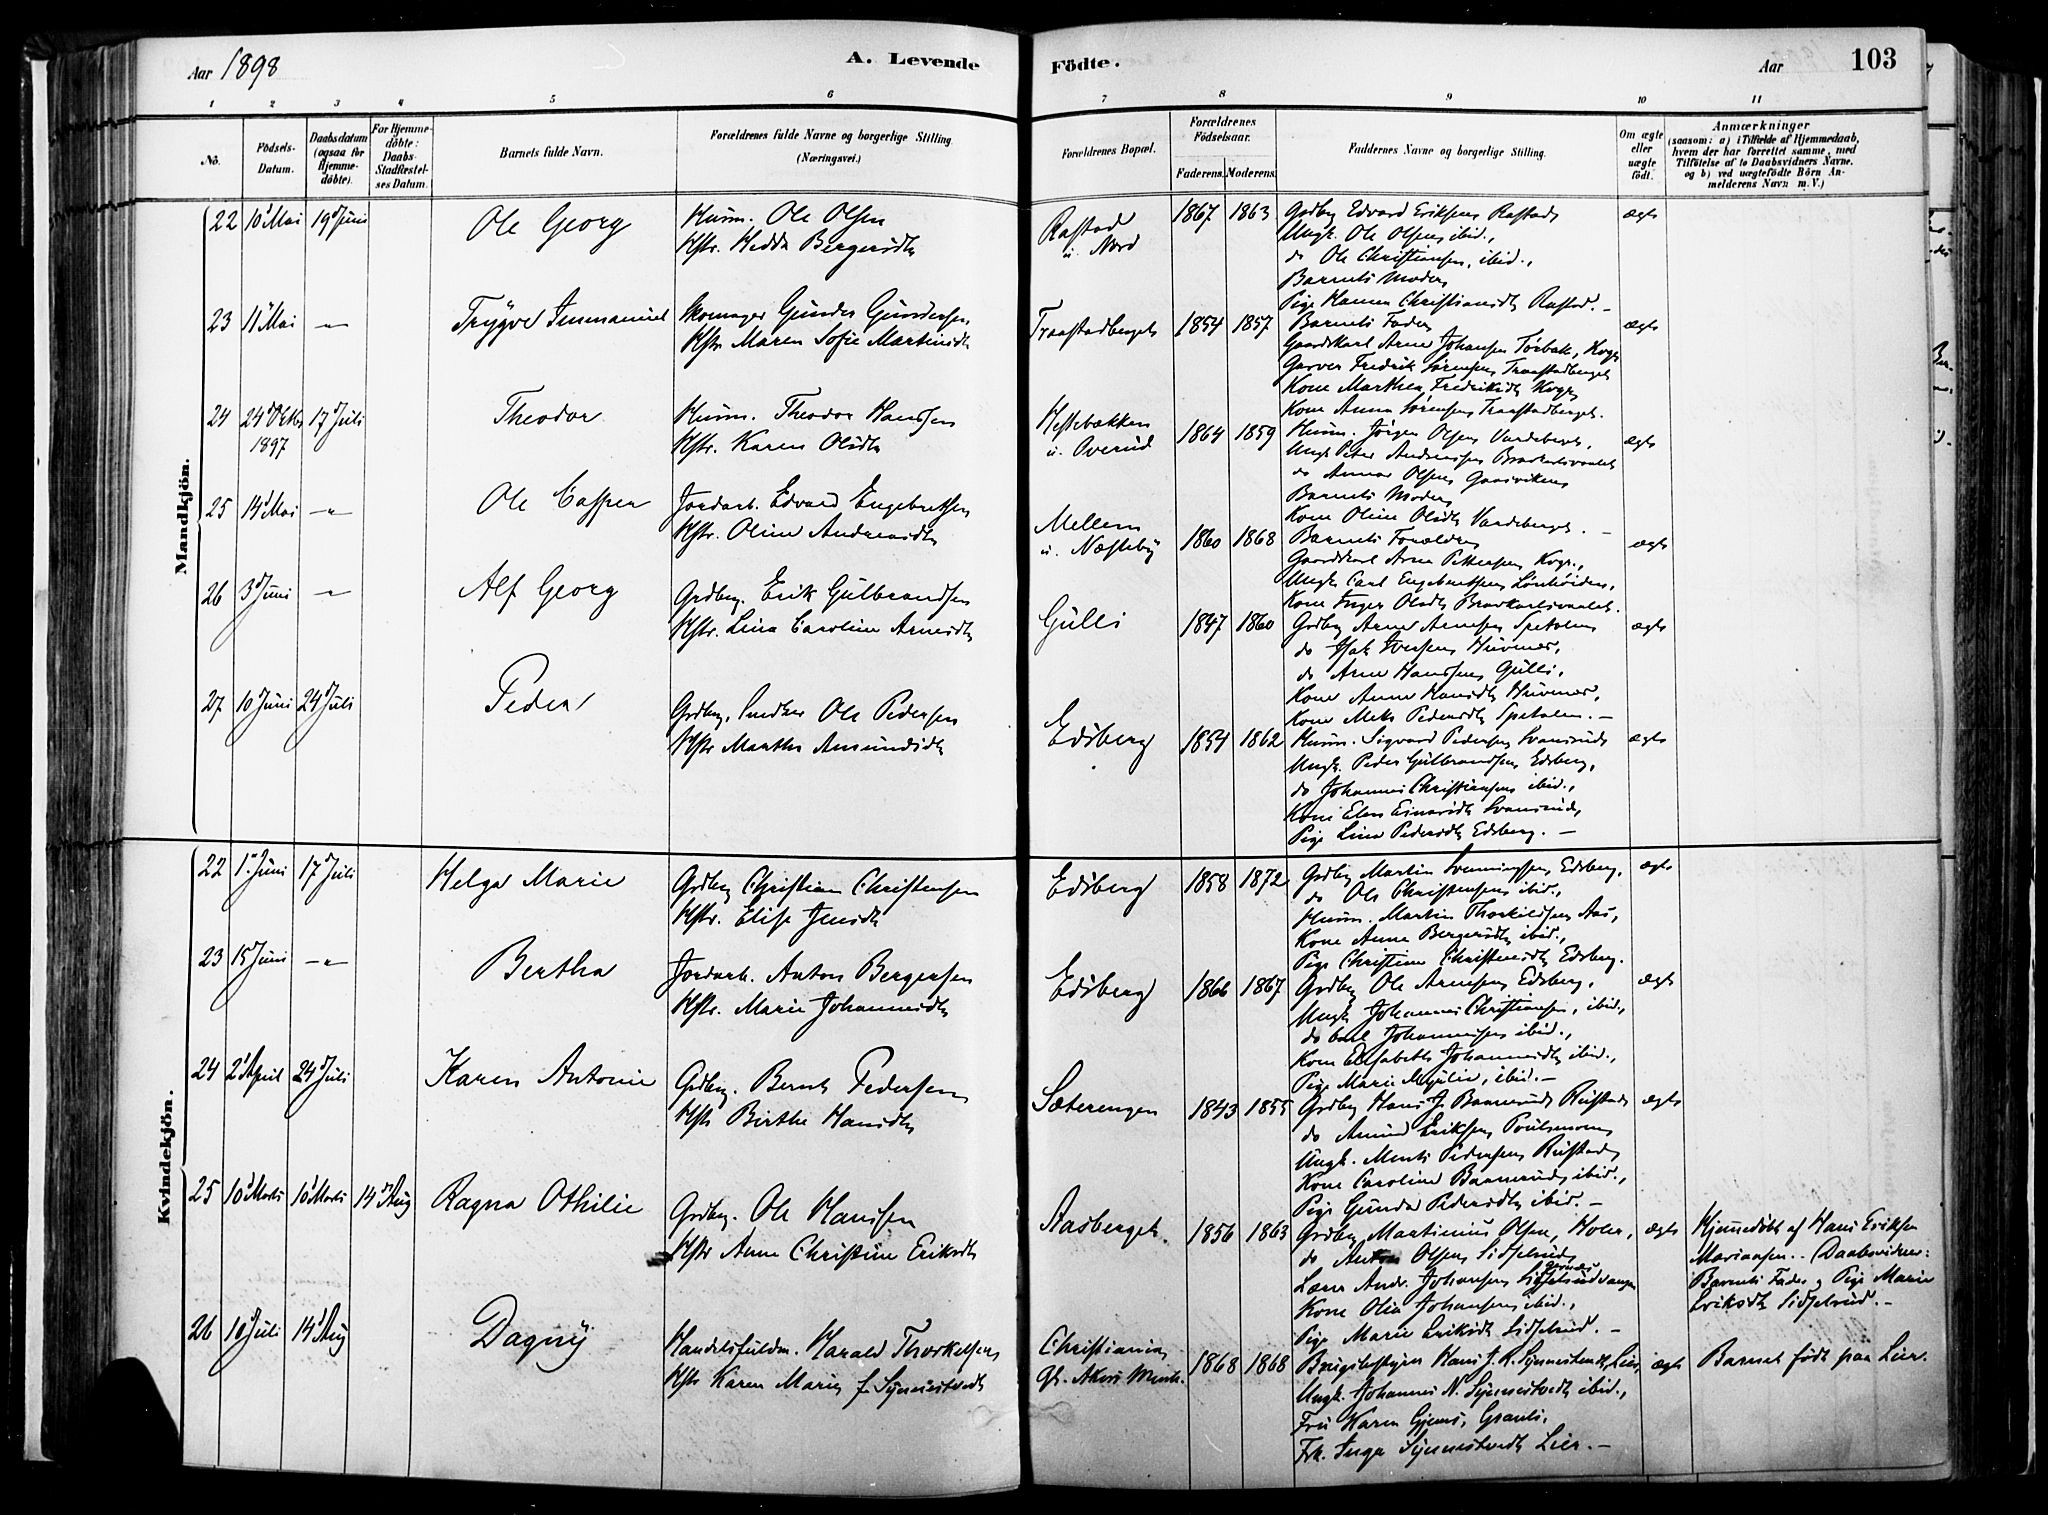 Aar 1898
A. Levende
Födte.
Aar
103
1 2 3 4 5 6 7 8 9 10 11
No.
Födsels-Datum.
Daabsdatum (ogsaa for Hjemme-döbte).
For Hjemme-döbte: Daabs-Stadfæstel-ses Datum.
Barnets fulde Navn.
Forældrenes fulde Navne og borgerlige Stilling (Næringsvei.)
Forældrenes Bopæl.
Forældrenes Födselsaar.
Faderens. Moderens.
Faddernes Navne og borgerlige Stilling.
Om ægte eller uægte födt.
Anmærkninger
(saasom: a) i Tilfælde af Hjemmedaab, hvem der har forrettet samme, med Tilföielse af to Daabsvidners Navne. og b) ved uægtefödte Börn An-melderens Navn m. V.)
Mandkjön.
22 10 Mai 19 Juni
Ole Georg
Huum. Ole Olsen
Hstr. Hedda Bergersdtr
Rastad
u. Nord
1867 1863
Grdbr Edvard Eriksen Rastad
Ungk. Ole Olsen ibid.,
do Ole Christiansen, ibid.,
Barnets Moder
Pige Hanna Christiansdtr Rastad. –
ægte
23 11 Mai –"–
Trÿgve Immanuel
Skomager Gunder Gundersen
Hstr. Maren Sofie Martinsdtr
Traastadberget
1854 1857
Barnets Fader
Gaardskarl Arne Johansen Torbak, Kogr
Garver Fredrik Sörensen Traastadberget
Kone Marthea Fredriksdtr Kogr
Kone Anna Sörensen Traastadberget.
ægte
24 24 Oktbr 1897 17 Juli
Theodor
Huum. Theodor Hanssen
Hstr. Karen Olsdtr
Hestebækken
u. Overud
1864 1859
Huum. Jörgen Olsen Vardeberget,
Ungk Peter Andreassen
do Annar Olsen Gaasviken
Barnets Moder
Kone Oline Olsdtr Vardeberget. –
ægte
25 14 Mai –"–
Ole Casper
Jordarb. Edvard Engebretsen
Hstr. Oline Andreasdtr
Mellem
u. Næsteby
1860 1868
Barnets Forældre
Gaardskarl Arne Pettersen Kogr.,
Ungk Carl Engebretsen
Kone Inger Olsdtr
ægte
26 3 Juni –"–
Alf Georg
Grdbr. Erik Gulbrandsen
Hstr. Lina Caroline Arnesdtr
Gulli
1847 1860
Grdbr Arne Arnesen Spetalen
do Isak Iversen Huvenes,
do Arne Hanssen Gulli,
Kone Anne Hansdtr Huvenes,
Kone Mette Pedersdtr Spetalen. –
ægte
27 10 Juni 24 Juli
Peder
Grdbr, Snedker Ole Pedersen
Hstr Marthe Amundsdtr
Edsberg
1854 1862
Huum. Sigvard Pedersen Svansrud
Ungk. Peder Gulbrandsen Edsberg,
do Johannes Christiansen ibid.,
Kone Elen Einarsdtr Svansrud,
Pige Lina Pedersdtr Edsberg. –
ægte
Kvindekjön.
22 1 Juni 17 Juli
Helga Marie
Grdbr Christian Christensen
Hstr. Elise Jensdtr
Edsberg
1858 1872
Grdbr Martin Svenningsen Edsberg,
do Ole Christensen ibid.,
Huum. Martin Thorkildsen Aas,
Kone Anne Bergersdtr ibid.,
Pige Christine Christensdtr Edsberg.
ægte
23 15 Juni –"–
Bertha
Jordarb. Anton Bergersen
Hstr. Marie Johannesdtr
Edsberg
1866 1867
Grdbr Ole Arnesen Edsberg,
Ungk Johannes Christiansen, ibid.,
do Carl Johannesen ibid.,
Kone Elisabeth Johannesdtr ibid.,
Pige Marie Mathilie, ibid. –
ægte
24 2 April 24 Juli
Karen Antonie
Grdbr. Bernt Pedersen
Hstr Birthe Hansdtr
Sæterengen
1843 1855
Grdbr Hans J. Baanerud Rustad
do Amund Eriksen
Ungk. Ments Pedersen Rustad
Kone Caroline Baanerud ibid.,
Pige Gunda Pedersdtr ibid. –
ægte
25 10 Marts 10 Marts 14 Aug
Ragna Othilie
Grdbr. Ole Hanssen
Hstr Anne Christine Eriksdtr
Aasberget.
1856 1863
Grdbr Martinius Olsen, Holer,
do Anton Olsen Sidselrud
Lærer Andr. Johansen
Kone Olia Johansen ibid.,
Pige Marie Eriksdtr Sidselrud. –
ægte
Hjemmedöbt af Hans Eriksen
Mariaasen.. Daabsvidner:
Barnets Fader og Pige Marie
Eriksdtr Sidselrud. –
26 10 Juli 14 Aug
Dagny
Handelsfuldm. Harald Thorkelsen
Hstr Karen Marie f. Synnestvedt
Christiania,
Gl. Akers Menh.
1868 1868
Brugsbestyrer Hans J. R. Synnestvedt, Lier,
Ungk. Johannes N. Synnestvedt ibid.,
Fru Karen Gjems, Granli,
Frk. Inga Synnestvedt Lier. –
ægte
Barnet födt paa Lier.